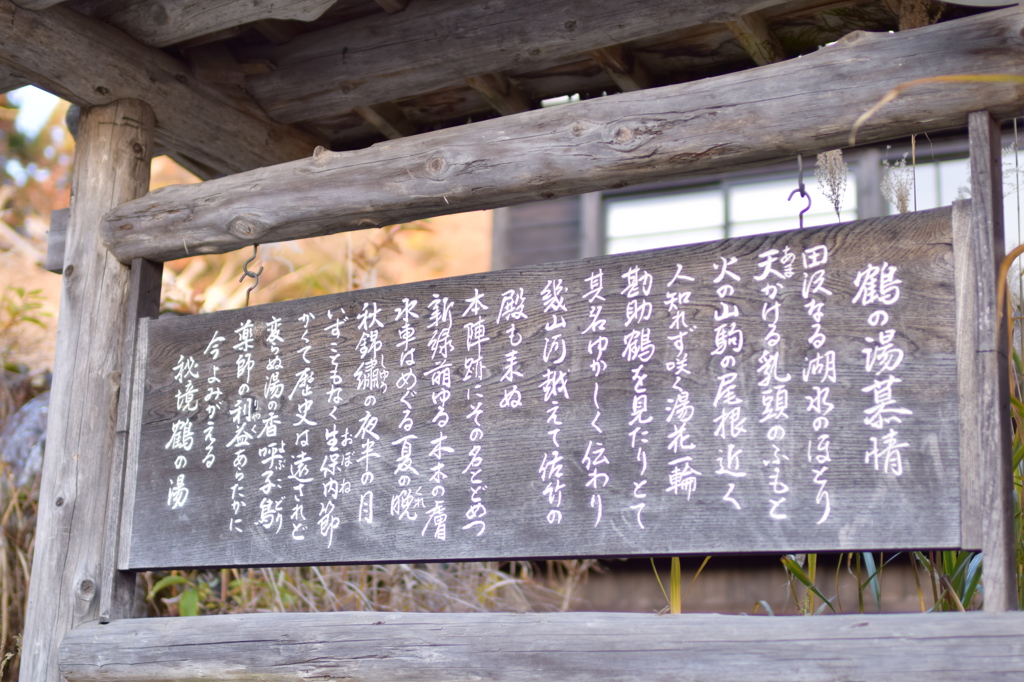 鶴の湯慕情
田沢なる湖水のほとり
天かける乳頭のふもと
火の山駒の尾根近く
人知れず咲く湯花一輪
勘助鶴を見たりとて
其名ゆかしく伝わり
幾山河越えて佐竹の
殿も来ぬ
本陣跡にその名とどめつ
新緑萌ゆる木木の膚
水車はめぐる夏の晩
秋錦繡の夜半の月
いずこともなく生保内節
かくて歴史は遠されど
変らぬ湯の香呼子鳥
薬師の利益あらたかに
今よみがえる
秘境鶴の湯